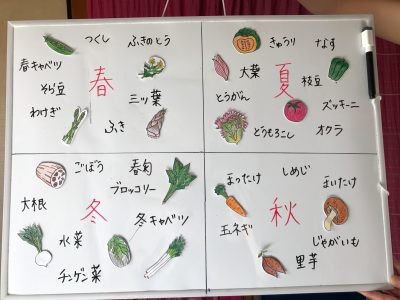 つくし
ふきのとう
春キャベツ
春
そら豆
三ッ葉
わけぎ
ふき
きゅうり
なす
大葉
夏
枝豆
とうがん
ズッキーニ
とうもろこし
オクラ
ごぼう
春菊
ブロッコリー
大根
冬
冬キャベツ
水菜
チンゲン菜
しめじ
まったけ
まいたけ
秋
玉ネギ
じゃがいも
里芋